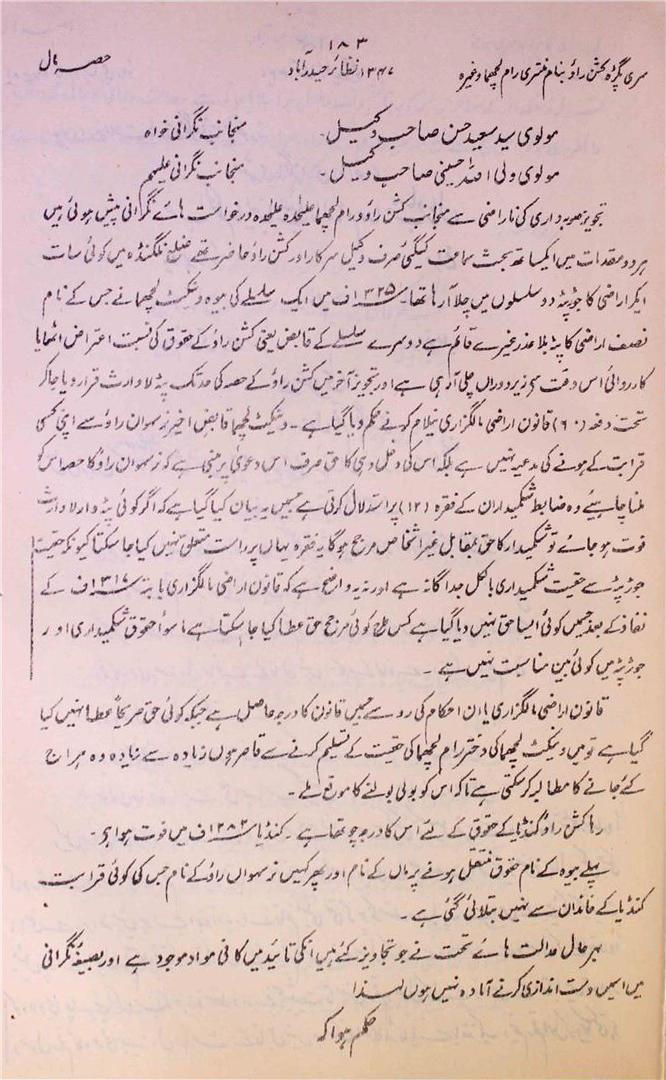 ۱۸۳
سری پگڑہ کشن راؤ بنام فتری رام لچھما وغیرہ ۱۳۴۷ نظائر حیدرآباد حصہ مال
مولوی سید سعید حسن صاحب وکیل۔ منجانب نگرانی خواہ
مولوی ولی اللہ حسینی صاحب وکیل۔ منجانب نگرانی علیہم
تجویز صوبہ داری کی ناراضی سے منجانب کشن راؤ و رام لچھما علیحدہ علیحدہ درخواست ہائے نگرانی پیش ہوئی ہیں
ہر دو مقدمات میں ایکساتھ بحث سماعت کیگئی صرف وکیل سرکار اور کشن راؤ حاضر تھے ضلع نلگنڈہ میں کوئی سات
ایکر اراضی کا جو پٹہ دو سلسلوں میں چلا آرہا تھا۔ ۱۳۲۵ف میں ایک سلسلے کی بیوہ وینکٹ لچھما نے جس کے نام
نصف اراضی کا پٹہ بلا عذر غیرے قائم ہے دوسرے سلسلے کے قابض یعنی کشن راؤ کے حقوق کی نسبت اعتراض اٹھایا
کارروائی اس وقت سے زیر دوراں چلی آرہی ہے اور تجویز آخر میں کشن راؤ کے حصہ کی حد تک پٹہ لاوارث قرار دیا جاکر
تحت دفعہ (۶۰) قانون اراضی مالگزاری نیلام کرنے حکم دیا گیا ہے۔ وینکٹ لچھما قابض اخیر نرسہوان راؤ سے اپنی کسی
قرابت کے ہونے کی مدعیہ نہیں ہے بلکہ اس کی دخل دہی کا حق صرف اس دعوی پر مبنی ہے کہ نرسہوان راؤ کا حصہ اس کو
ملنا چاہیئے وہ ضابطہ شکمیداران کے فقرہ (۱۲) پر استدلال کرتی ہے جسمیں یہ بیان کیا گیا ہے کہ اگر کوئی پٹہ دار لاوارث
فوت ہو جائے تو شکمیدار کا حق بمقابل غیر اشخاص مرجح ہوگا یہ فقرہ یہاں پر راست متعلق نہیں کیا جا سکتا کیونکہ حقیت
جوز پٹہ سے حقیت شکمیداری بالکل جداگانہ ہے اور نہ یہ واضح ہے کہ قانون اراضی مالگزاری بابتہ ۱۳۱۷ف کے
نفاذ کے بعد جسمیں کوئی ایسا حق نہیں دیا گیا ہے کس طرح کوئی مرجح حق عطا کیا جا سکتا ہے ماسوا حقوق شکمیداری اور
جوز پٹہ میں کوئی بین مناسبت نہیں ہے۔
قانون اراضی مالگزاری یا ان احکام کی رو سے جنہیں قانون کا درجہ حاصل ہے جبکہ کوئی حق صریحاً عطا نہیں کیا
گیا ہے تو میں وینکٹ لچھما کی دختر رام لچھما کی حقیت کے تسلیم کرنے سے قاصر ہوں زیادہ سے زیادہ وہ ہراج
کئے جانے کا مطالبہ کر سکتی ہے تاکہ اس کو بولی بولنے کا موقع ملے۔
رہا کشن راؤ کنڈیا کے حقوق کے لئے اس کا درجہ چوتھا ہے۔ کنڈیا ۱۲۸۲ف میں فوت ہوا ہے۔
پہلے بیوہ کے نام حقوق منتقل ہونے پر ماں کے نام اور پھر کہیں نرسہوان راؤ کے نام جس کی کوئی قرابت
کنڈیا کے خاندان سے نہیں بتلائی گئی ہے۔
بہرحال عدالت ہائے تحت نے جو تجاویز کئے ہیں انکی تائید میں کافی مواد موجود ہے اور بصیغہ نگرانی
میں اسمیں دست اندازی کرنے آمادہ نہیں ہوں لہذا
حکم ہوا کہ